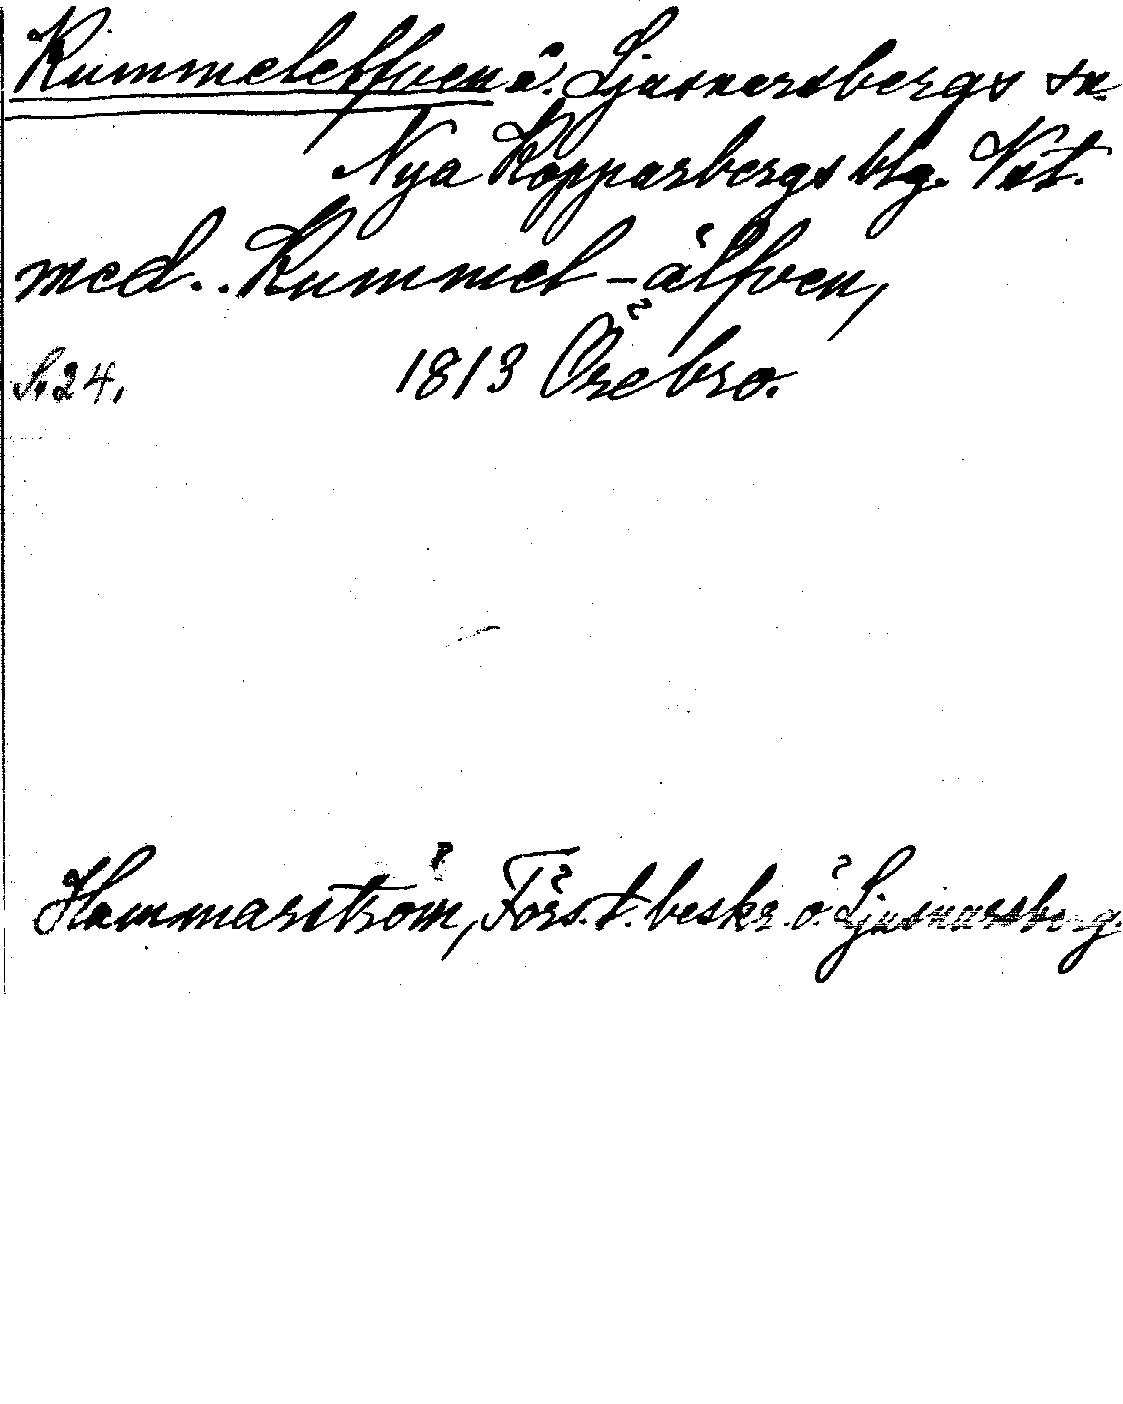 Kummelelfven å. Ljusnarsbergs sn.
Nya Kopparbergs blg. Vst.
med.. Kummel-älfven,
S. 24. 1813 Örebro.
Hammarström, Förs. t. beskr. ö. Ljusnarsberg.